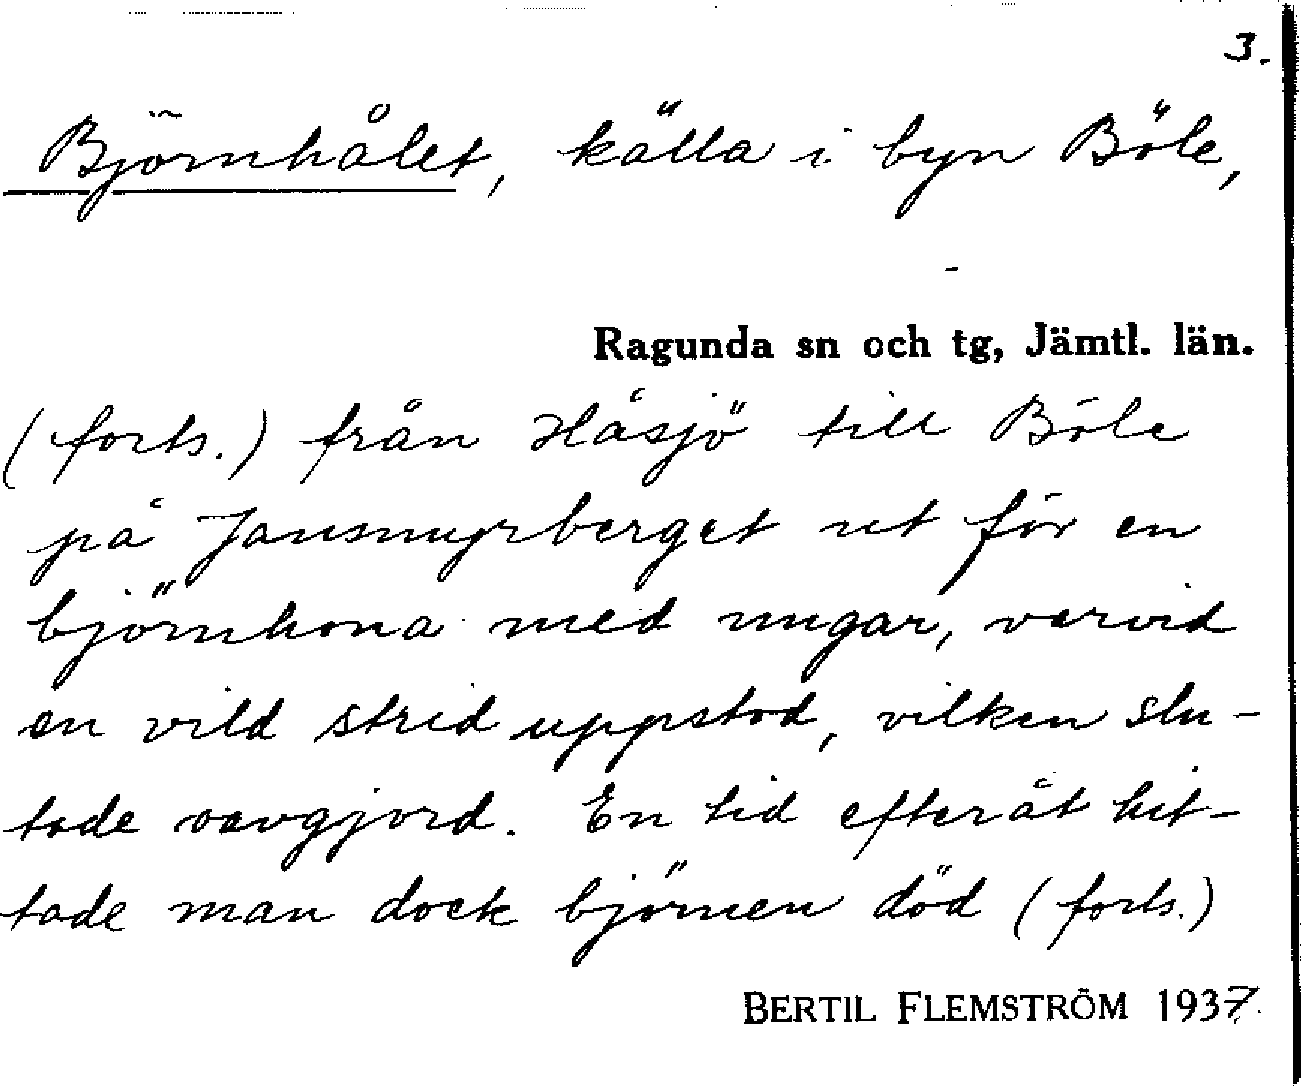 3.
Björnhålet, källa i byn Böle,
Ragunda sn och tg, Jämtl. län.
(forts.) från Håsjö till Böle
på Jansmyrberget ut för en
björnhona med ungar, varvid
en vild strid uppstod, vilken slu-
tade oavgjord. En tid efteråt hit-
tade man dock björnen död (forts.)
BERTIL FLEMSTRÖM 1937